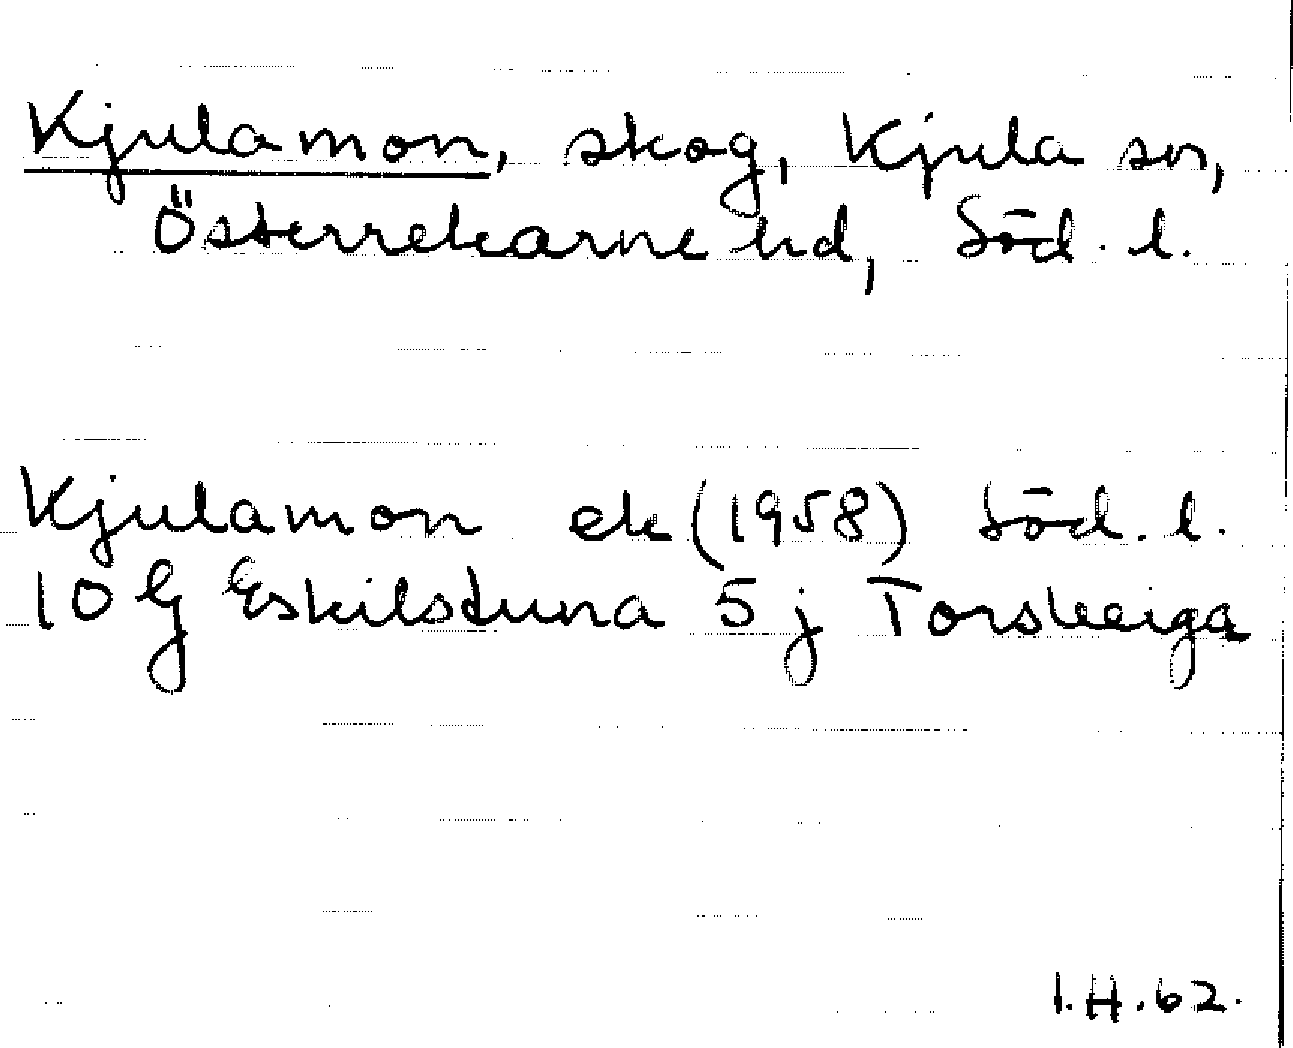 Kjulamon, skog, Kjula sn,
Österrekarne hd, Söd. l.
Kjulamon ek (1958) Söd. l.
10 G Eskilstuna 5 j Torshälla
I.H.62.